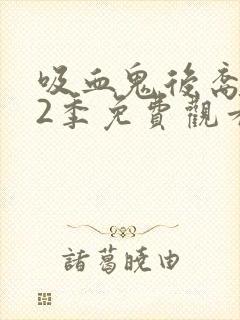 吸血鬼後裔
2季免費觀看
諸葛曉由